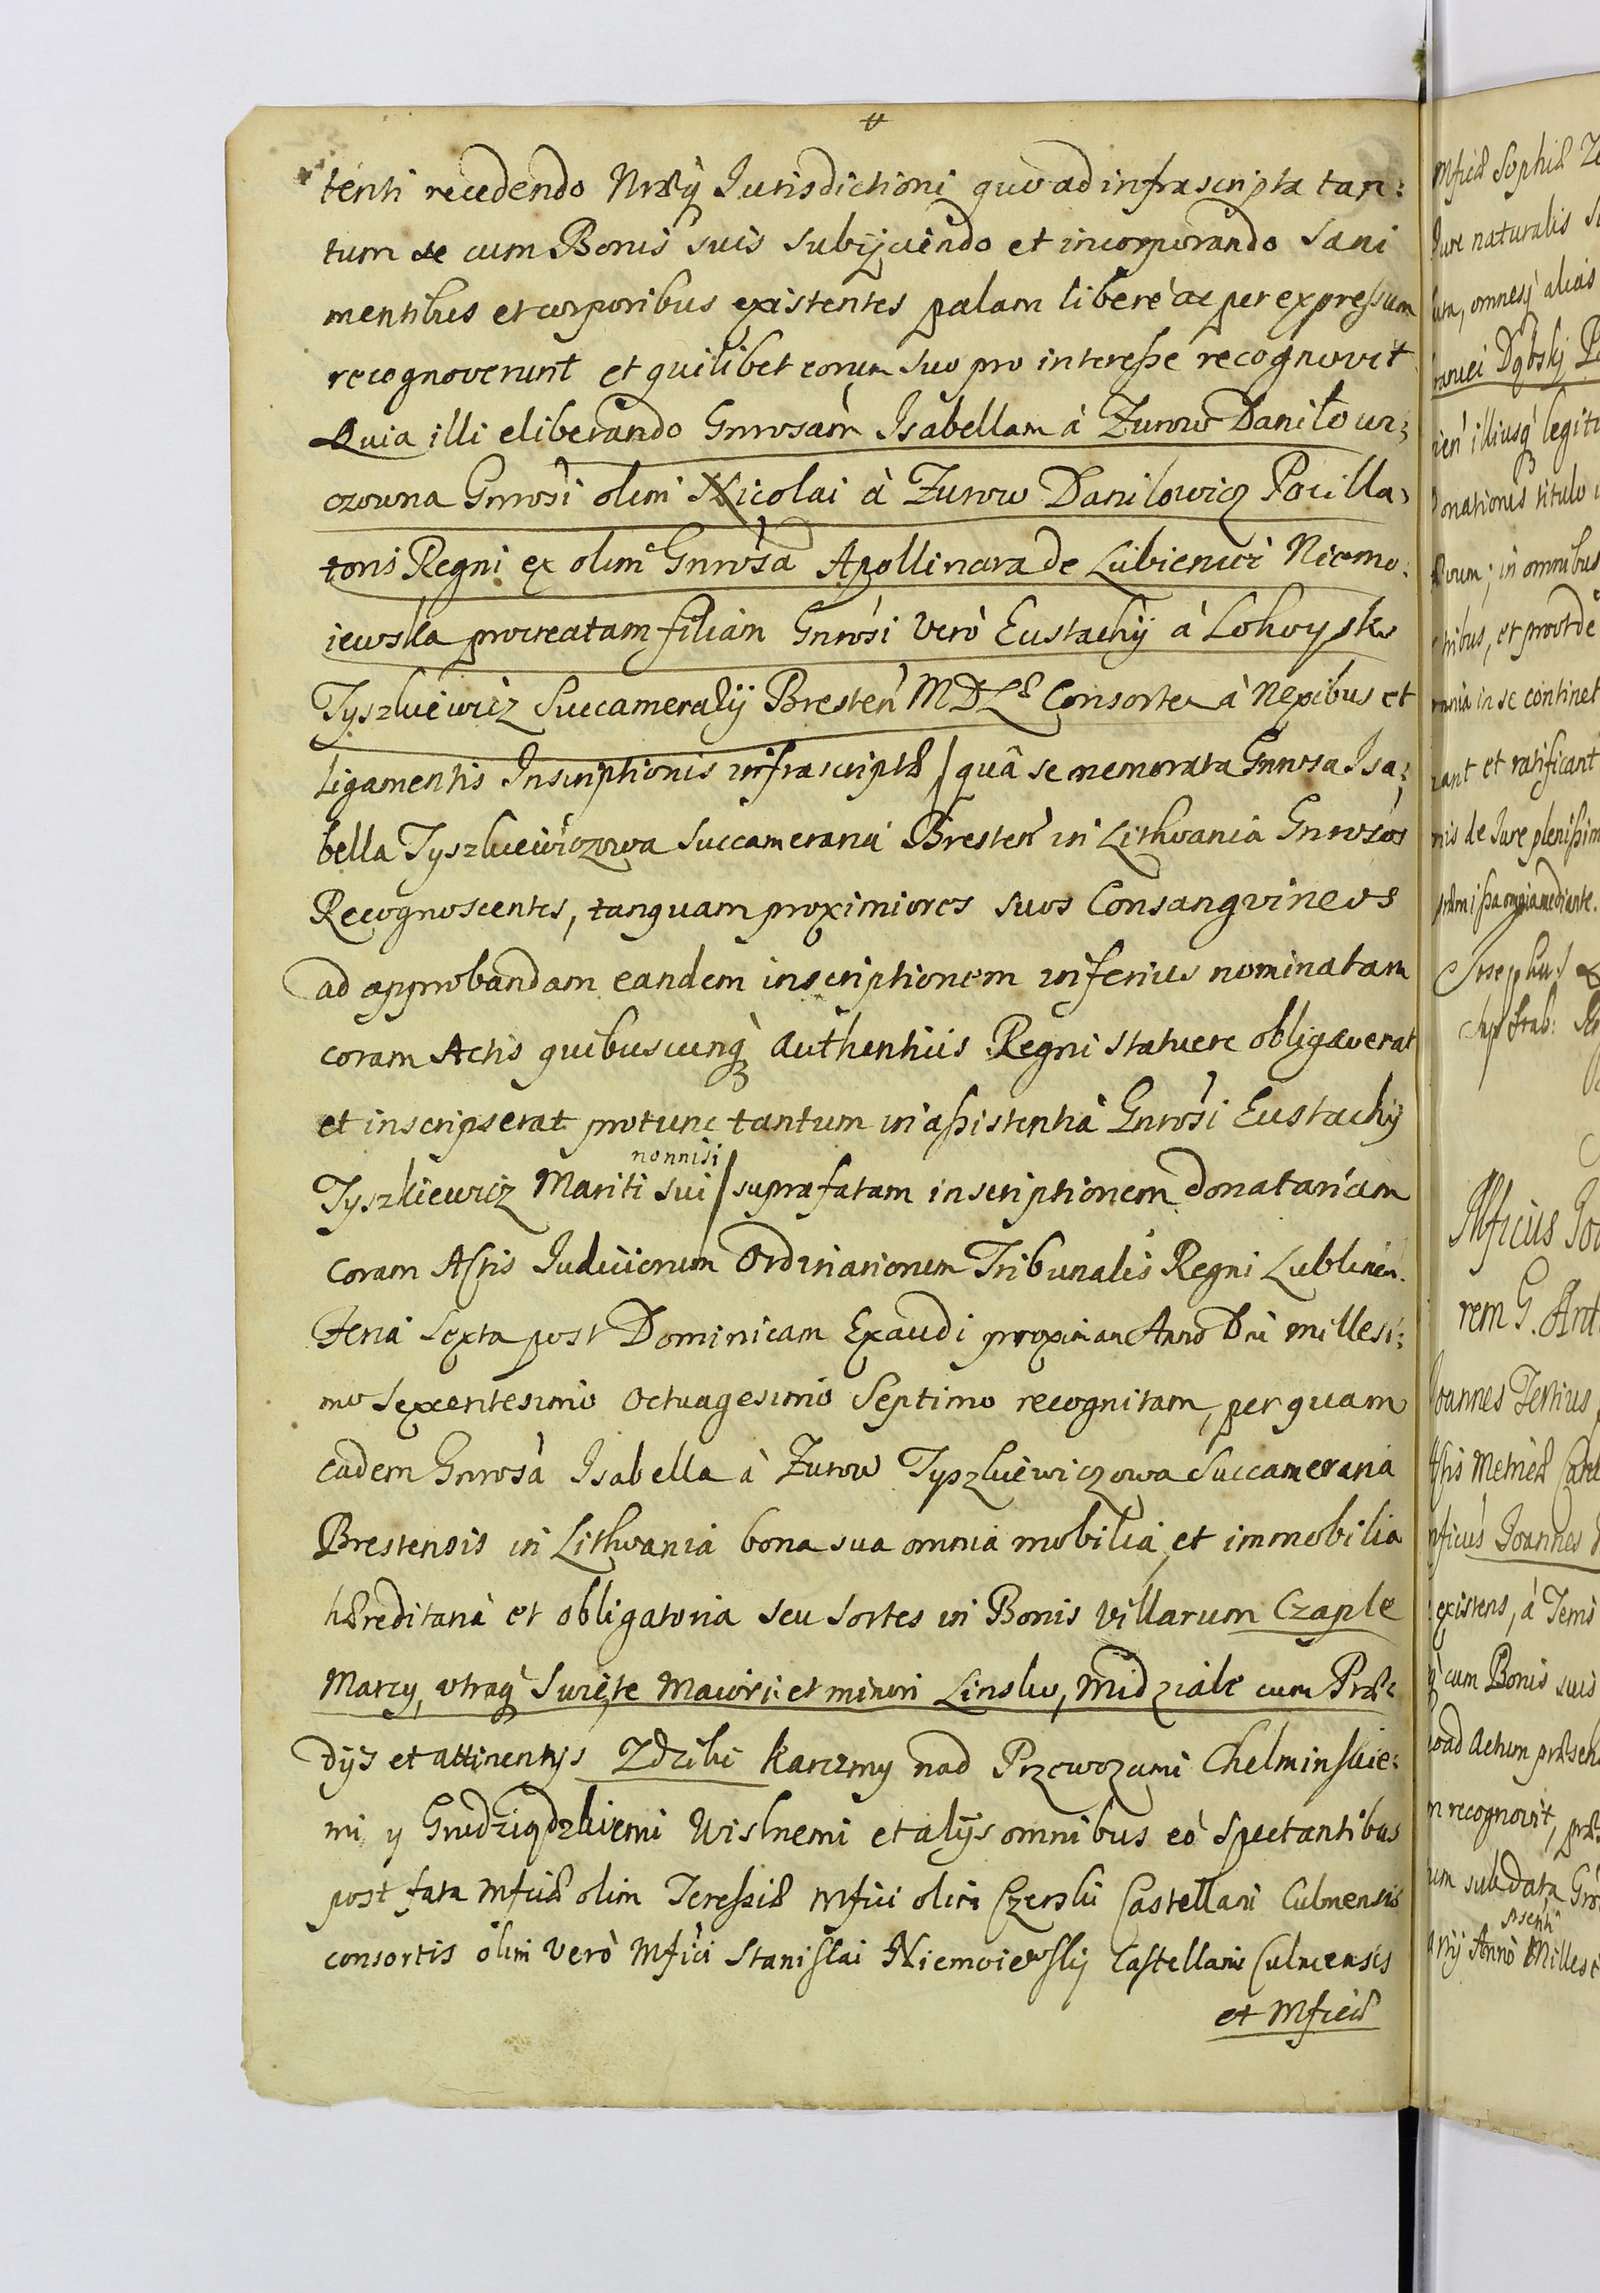 tenti recedendo Nræq Jurisdictioni quo ad infrascripta tan:
tum se cum Bonis suis subijciendo et incorporando Sani
mentibus et corporibus existentes palam liberè ac per expressum
recognoverunt et quilibet eorum suo pro interesse recognovit
Quia illi eliberando Gnrosam Isabellam à Zurow Daniłowi:
czowna Gnrosi olim Nicolai à Zurow Danilowicz Pocilla:
toris Regni ex olim Gnrosa Apollinara de Lubieniec Niemo:
iewska procreatam filiam Gnrosi verò Eustachij à Lohoysko
Tyszkiewicz Succamerarij Bresten MDL Consortem à Nexibus et
Ligamentis Inscriptionis infrascriptæ / quâ se memorata Gnrosa Isa:
bella Tyszkiewiczowa Succamerana Bresten in Lithvania Gnrosos
Recognoscentes, tanquam proximiores suos Consangvineos
ad approbandam eandem inscriptionem inferius nominatam
coram Actis quibuscunq authenticis Regni statuere obligaverat
et inscripserat protunc tantum in assistentia Gnrosi Eustachij
nonnisi
Tyszkiewicz Mariti sui / suprafatam inscriptionem donatariam
Coram Actis Judiciorum Ordinariorum Tribunalis Regni Lublinen.
Feria Sexta post Dominicam Exaudi proxima Anno Dni millesi:
mo Sexentesimo Octuagesimo Septimo recognitam, per quam
eadem Gnrosa Isabella à Zurow Tyszkiewiczowa Succamerana
Brestensis in Lithvania bona sua omnia mobilia et immobilia
hæreditaria et obligatoria seu sortes in Bonis villarum Czaple
Marzy, utraq Swięte Maiori et minori Linsko, Midziale cum Præ:
dijs et attinentijs Zdroiki Karczmy nad Przewozami Chelminskie:
mi y Grudziądzkiemi Wislnemi et alijs omnibus eò Spectantibus
post fata Mficæ olim Teressiæ Mfici olim Czerski Castellani Culmensis
consortis olim verò Mfici Stanislai Niemoiewskij Castellani Culmensis
et Mficæ
Mficæ Sophiæ
Jure naturalis
omnesq alias
Dąbskij
illiusq legiti
onationis titulo
in omnibus
et prout de
in se continet
et ratificant
de Jure plenissim
mediante.
Josephus
Mficus Jo
rem G. Ant
Joannes Tertius
Joannes
existens, à Terris
cum Bonis suis
Actum
recognovit,
sub data
Anno Milles